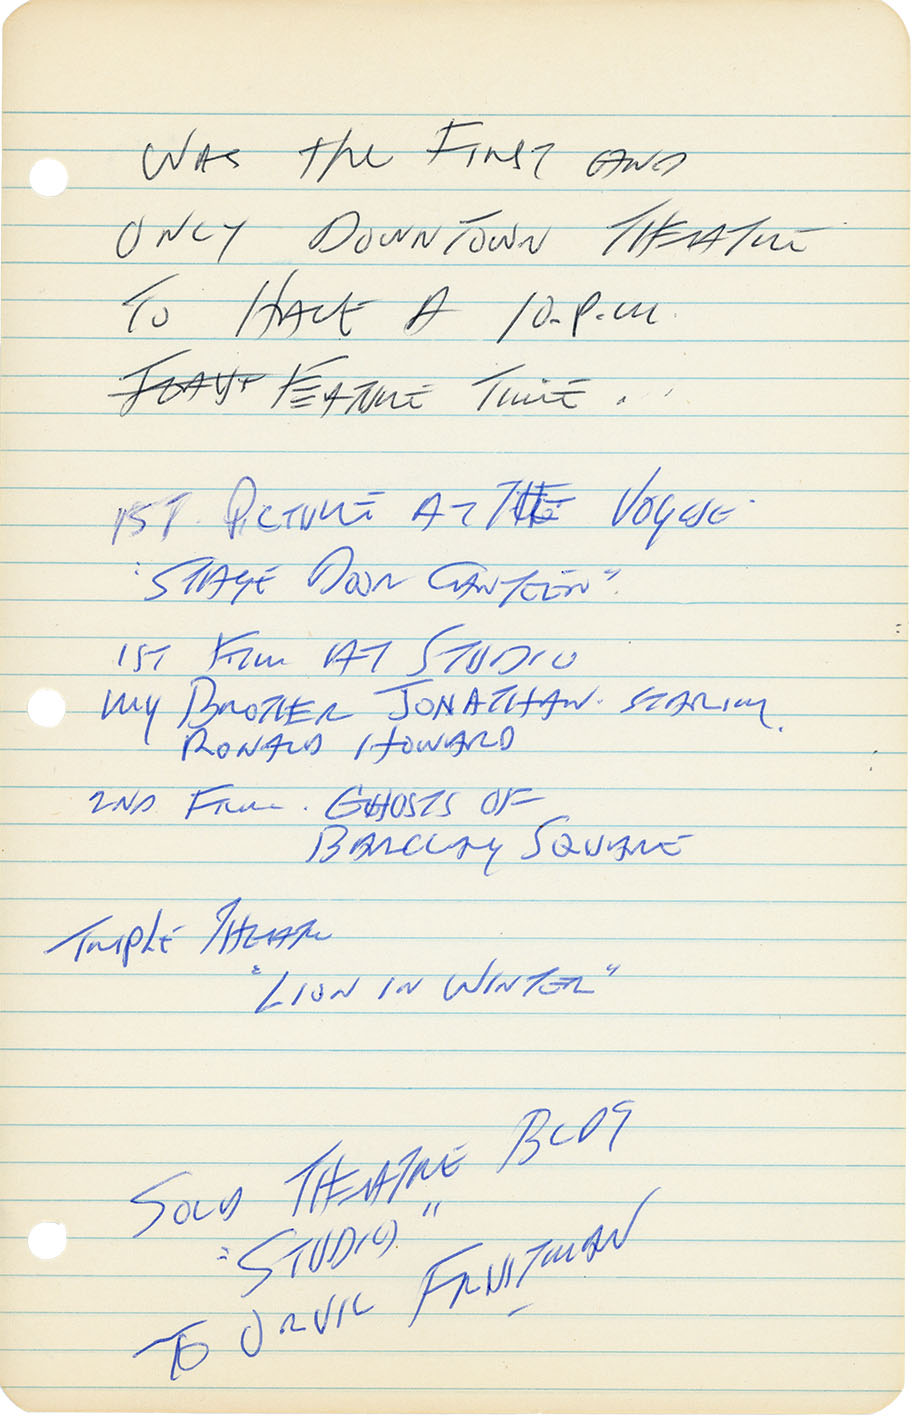 WAS THE FIRST AND
ONLY DOWNTOWN THEATRE
TO HAVE A 10.P.M.
FEATURE TIME.
1ST. PICTURE AT THE VOGUE
"STAGE DOOR CANTEEN".
1ST FILM AT STUDIO
MY BROTHER JONATHAN. STARING.
RONALD HOWARD
2ND FILM. GHOSTS OF
BARCLAY SQUARE
TRIPLE THEATRE
"LION IN WINTER"
SOLD THEATRE BLDG
"STUDIO"
TO ORVIL FRUITMAN